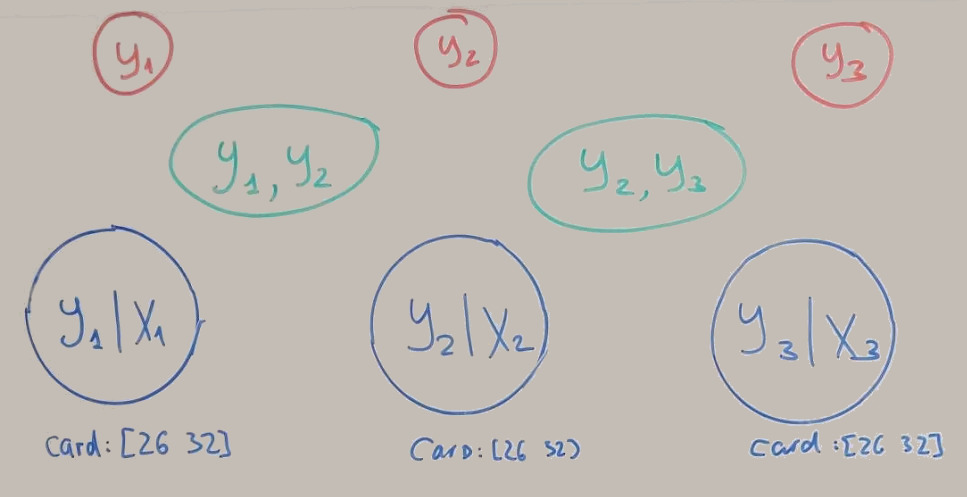 y₁ y₂ y₃
y₁, y₂ y₂, y₃
y₁|X₁ y₂|X₂ y₃|X₃
card: [26 32] Card: [26 32) card: [26 32]